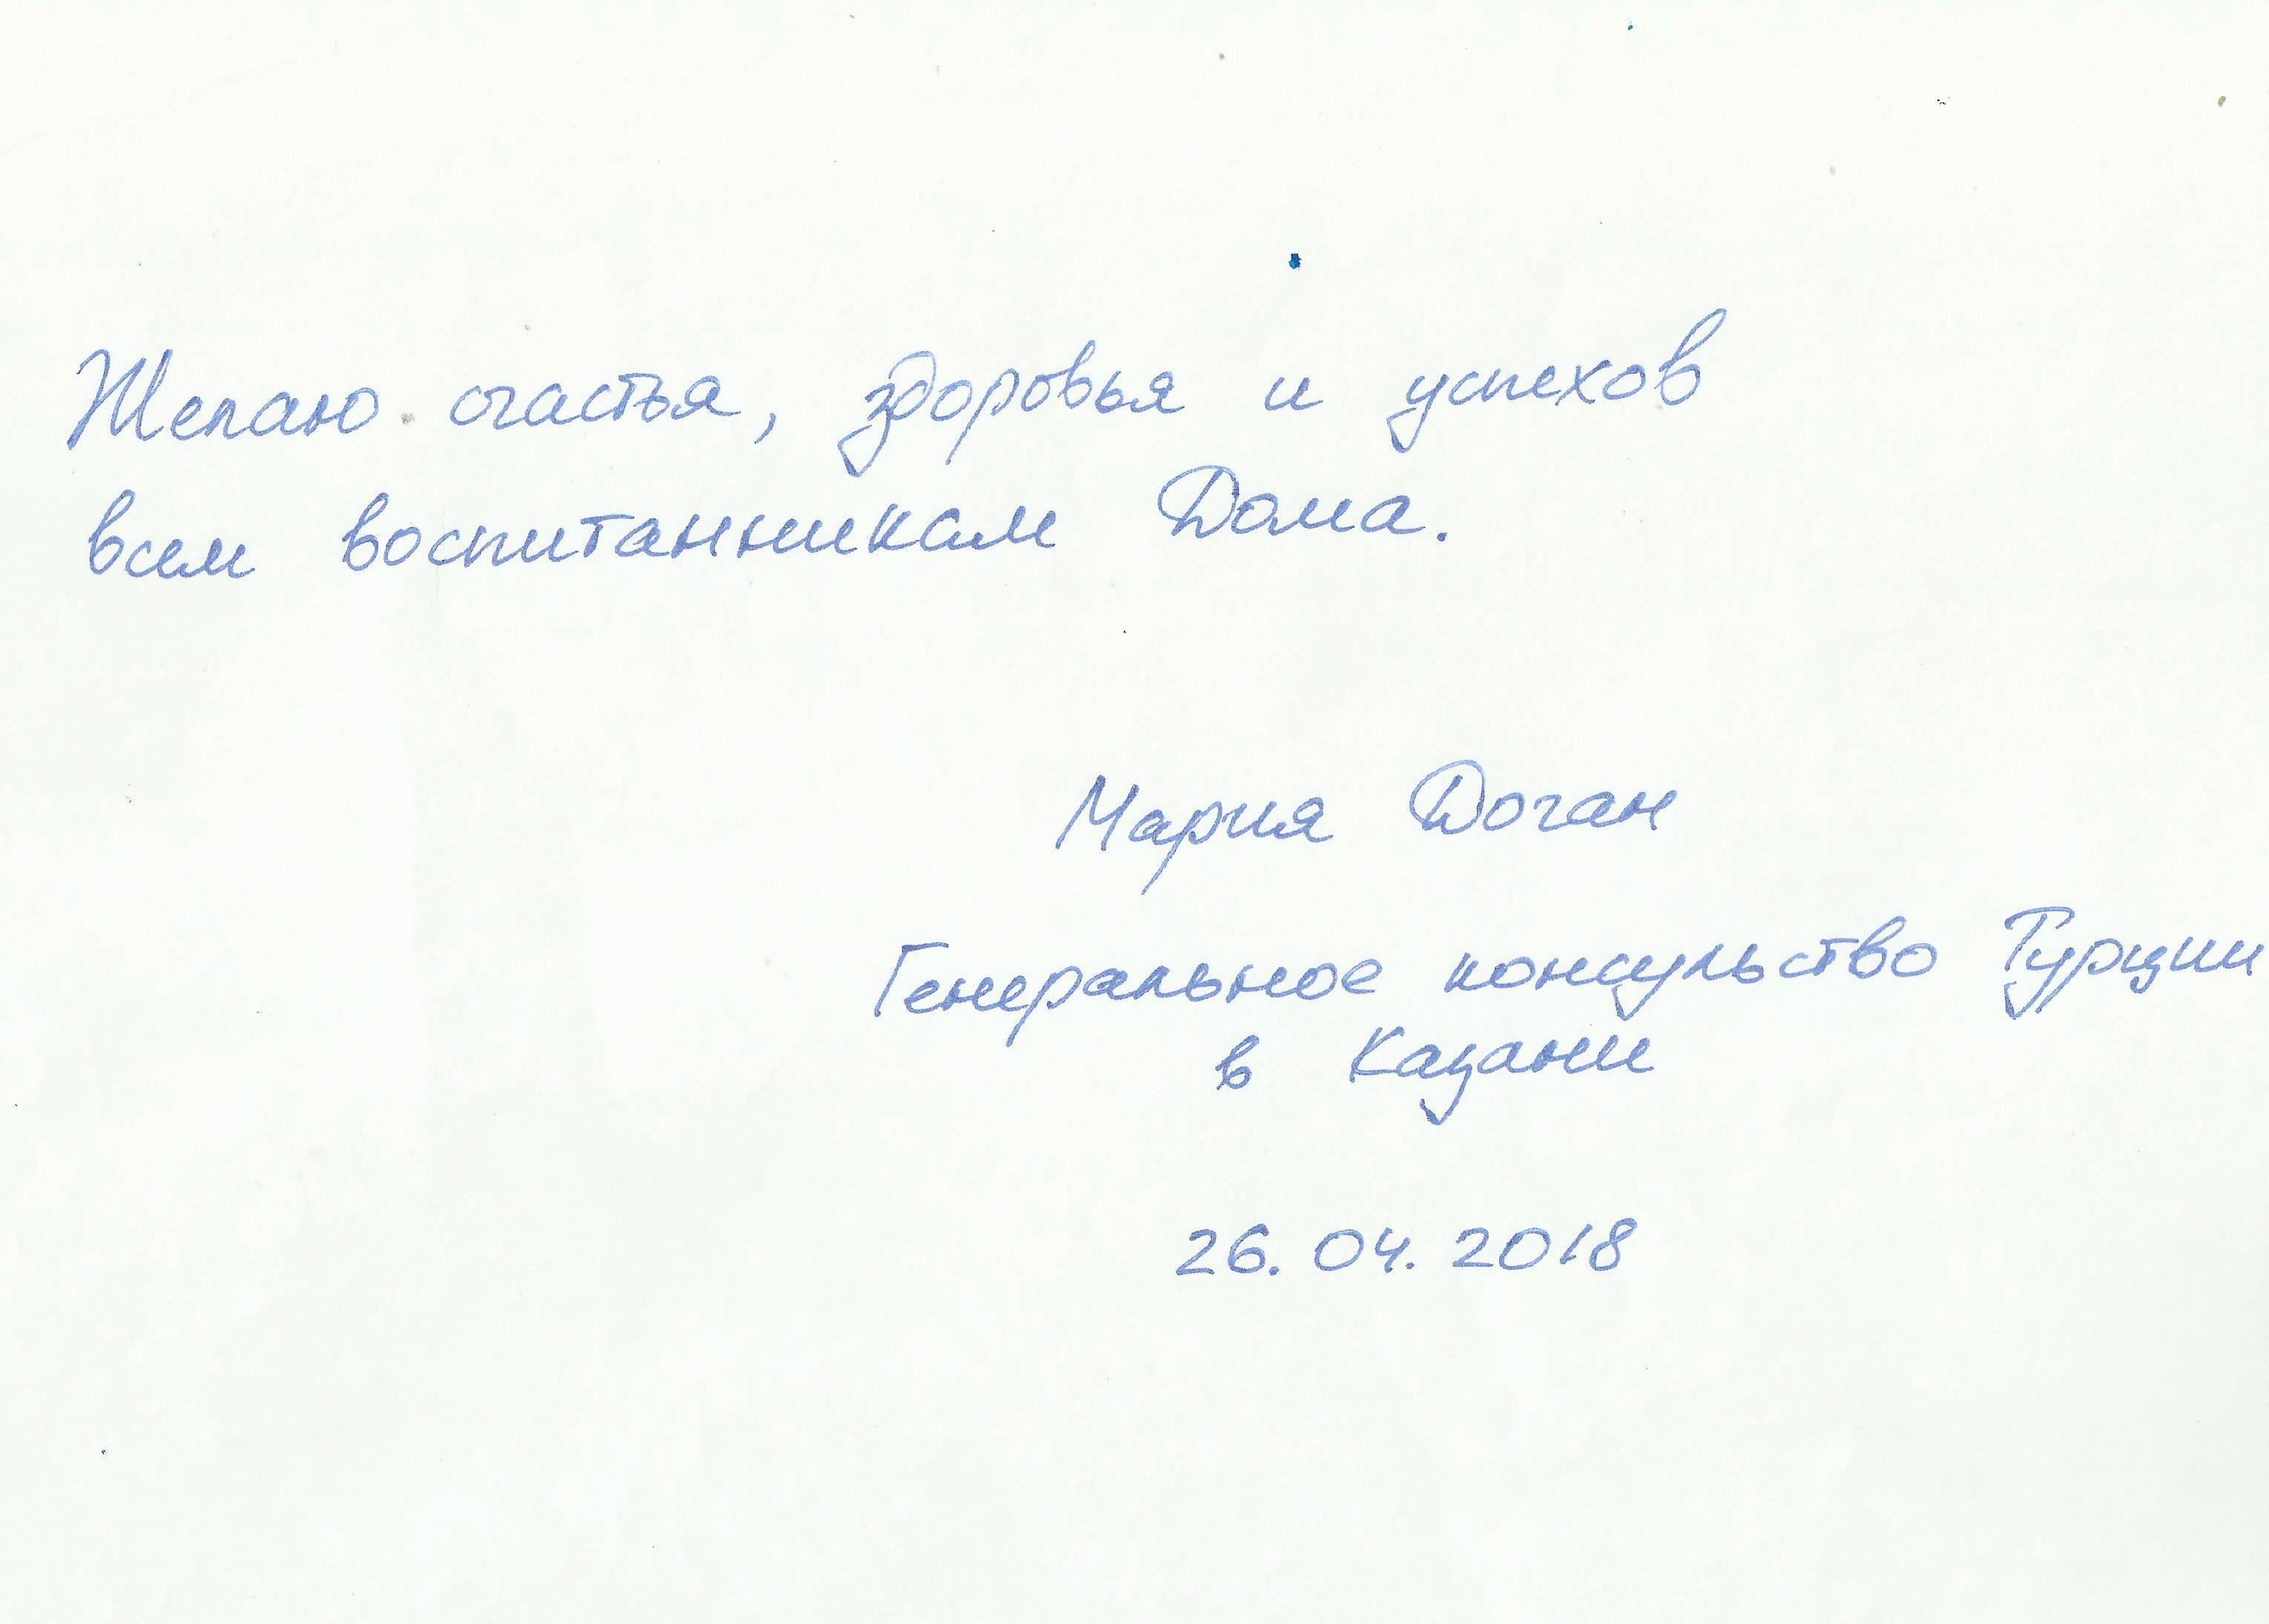 Желаю счастья, здоровья и успехов
всем воспитанникам Дома.
Мария Доган
Генеральное консульство Турции
в Казани
26.04.2018